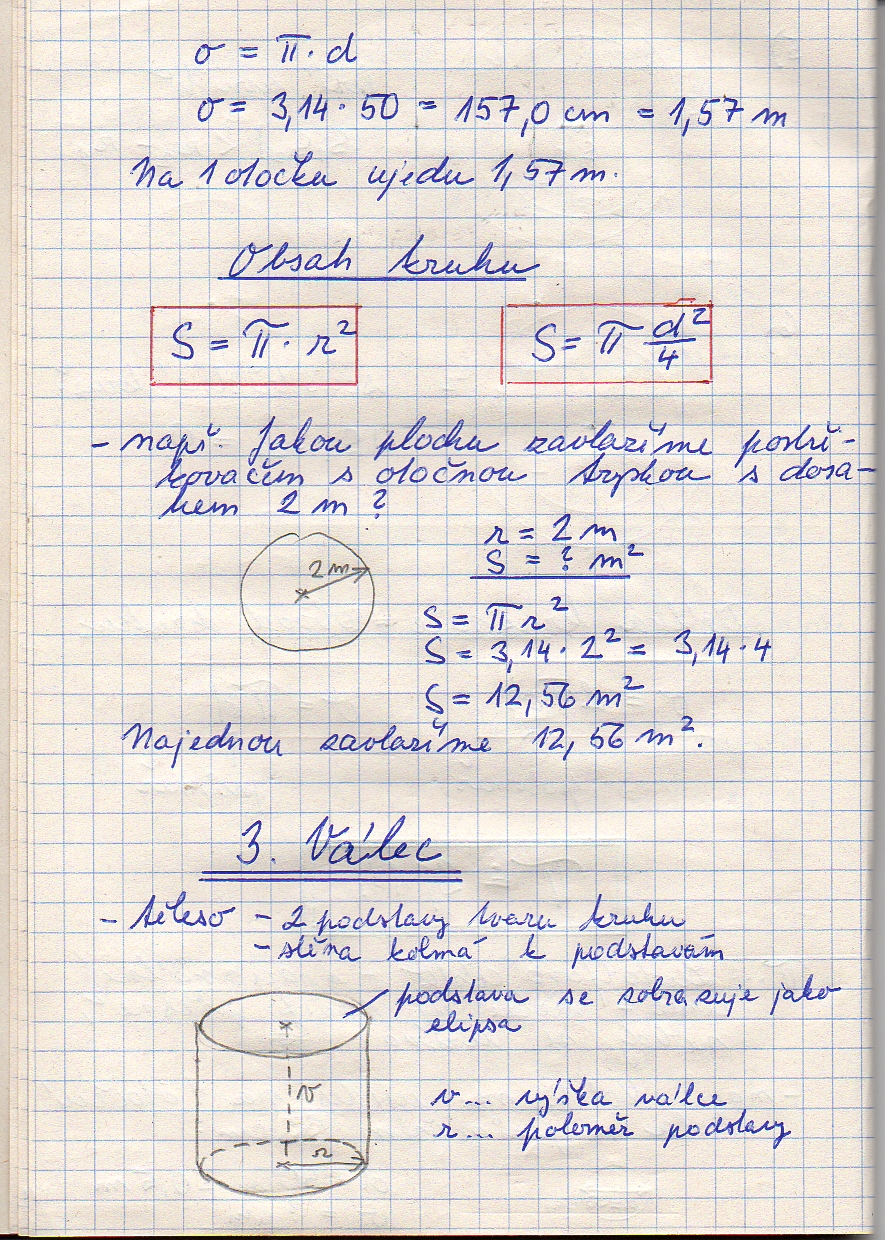 o = π · d
o = 3,14 · 50 = 157,0 cm = 1,57 m
Na 1 otočku ujedu 1,57 m.
Obsah kruhu
S = π · r²
S = π d²/4
- např. Jakou plochu zavlažíme postři-
kovačem s otočnou tryskou s dosa-
hem 2 m ?
r = 2 m
S = ? m²
2 m
S = π r²
S = 3,14 · 2² = 3,14 · 4
S = 12,56 m²
Najednou zavlažíme 12,56 m².
3. Válec
- těleso - 2 podstavy tvaru kruhu
- stěna kolmá k podstavám
podstava se zobrazuje jako
elipsa
v
v ... výška válce
r ... poloměr podstavy
r